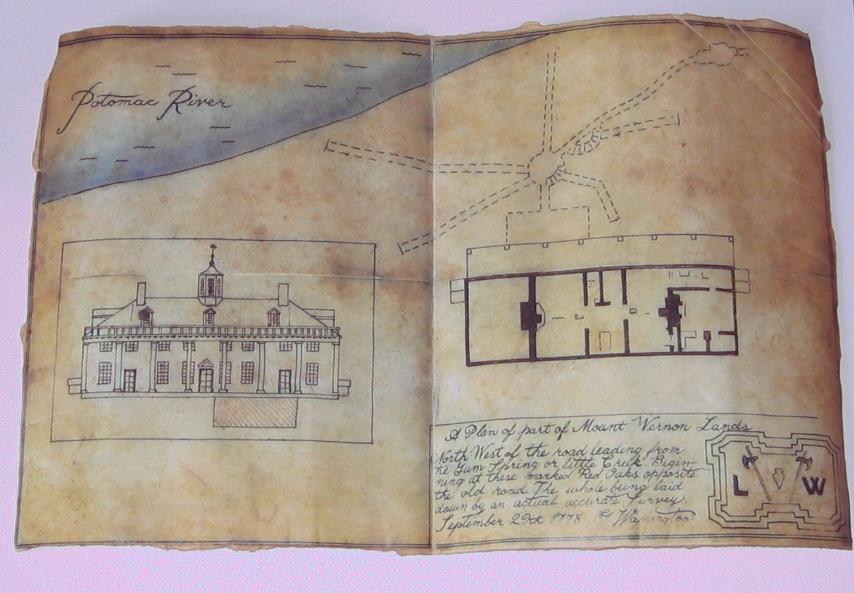 Potomac River
A Plan of part of Mount Vernon Lands
North West of the road leading from
he Gum Spring or little Creek. Begin-
ning at these marked Red Oaks opposite
the old road. The whole being laid
down by an actual accurate Survey
September 1778 G Washington
L W